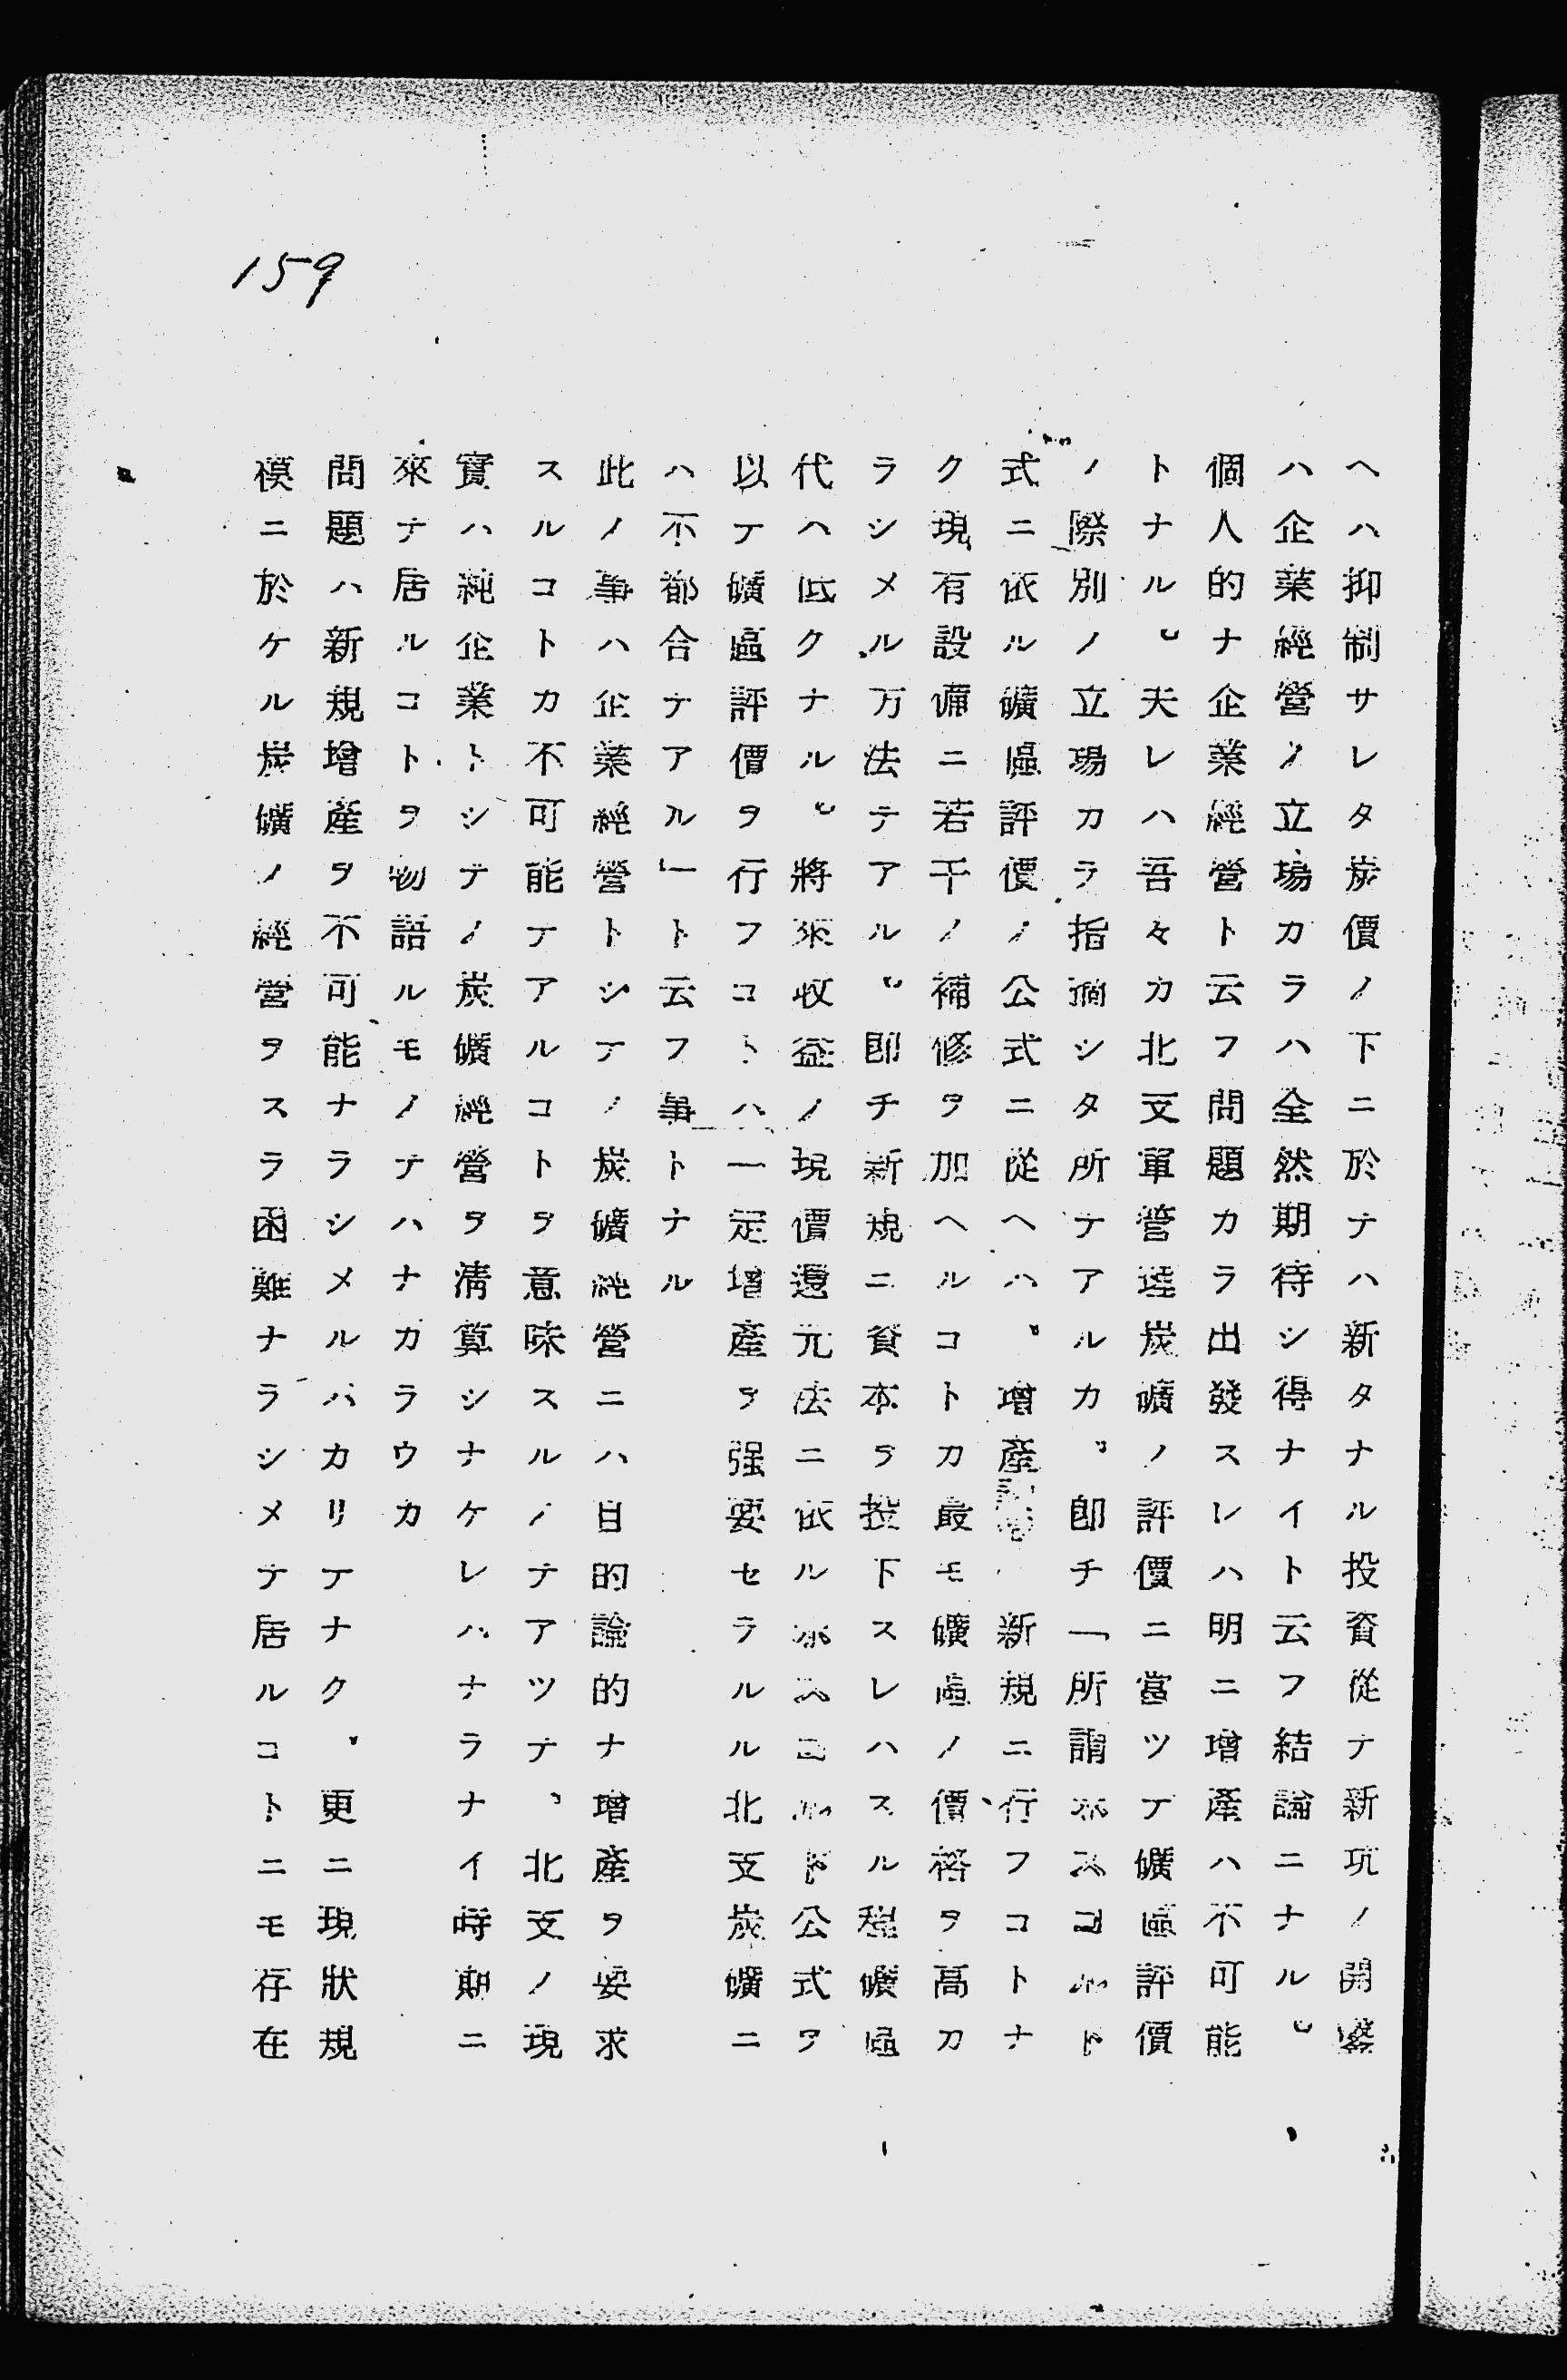 159
ヘハ抑制サレタ炭價ノ下ニ於テハ新タナル投資從テ新坑ノ開發
ハ企業經營ノ立場カラハ全然期待シ得ナイト云フ結論ニナル。
個人的ナ企業經營ト云フ問題カラ出發スレハ明ニ增產ハ不可能
トナル。夫レハ吾々カ北支軍管理炭礦ノ評價ニ當ツテ礦區評價
ノ際別ノ立場カラ指摘シタ所テアルカ。卽チ「所謂ホスコルド
式ニ依ル礦區評價ノ公式ニ從ヘハ、增產 新規ニ行フコトナ
ク現有設備ニ若干ノ補修ヲ加ヘルコトカ最モ礦區ノ價格ヲ高カ
ラシメル方法テアル。卽チ新規ニ資本ヲ投下スレハスル程礦區
代ヘ低クナル。將來收益ノ現價還元法ニ依ルホスコルド公式ヲ
以テ礦區評價ヲ行フコトハ一定增產ヲ强要セラルル北支炭礦ニ
ハ不都合テアル」ト云フ事トナル
此ノ事ハ企業經營トシテノ炭礦經營ニハ目的論的ナ增產ヲ要求
スルコトカ不可能テアルコトヲ意味スルノテアツテ、北支ノ現
實ハ純企業トシテノ炭礦經營ヲ淸算シナケレハナラナイ時期ニ
來テ居ルコトヲ物語ルモノテハナカラウカ
問題ハ新規增產ヲ不可能ナラシメルバカリテナク、更ニ現狀規
模ニ於ケル炭礦ノ經營ヲスラ困難ナラシメテ居ルコトニモ存在